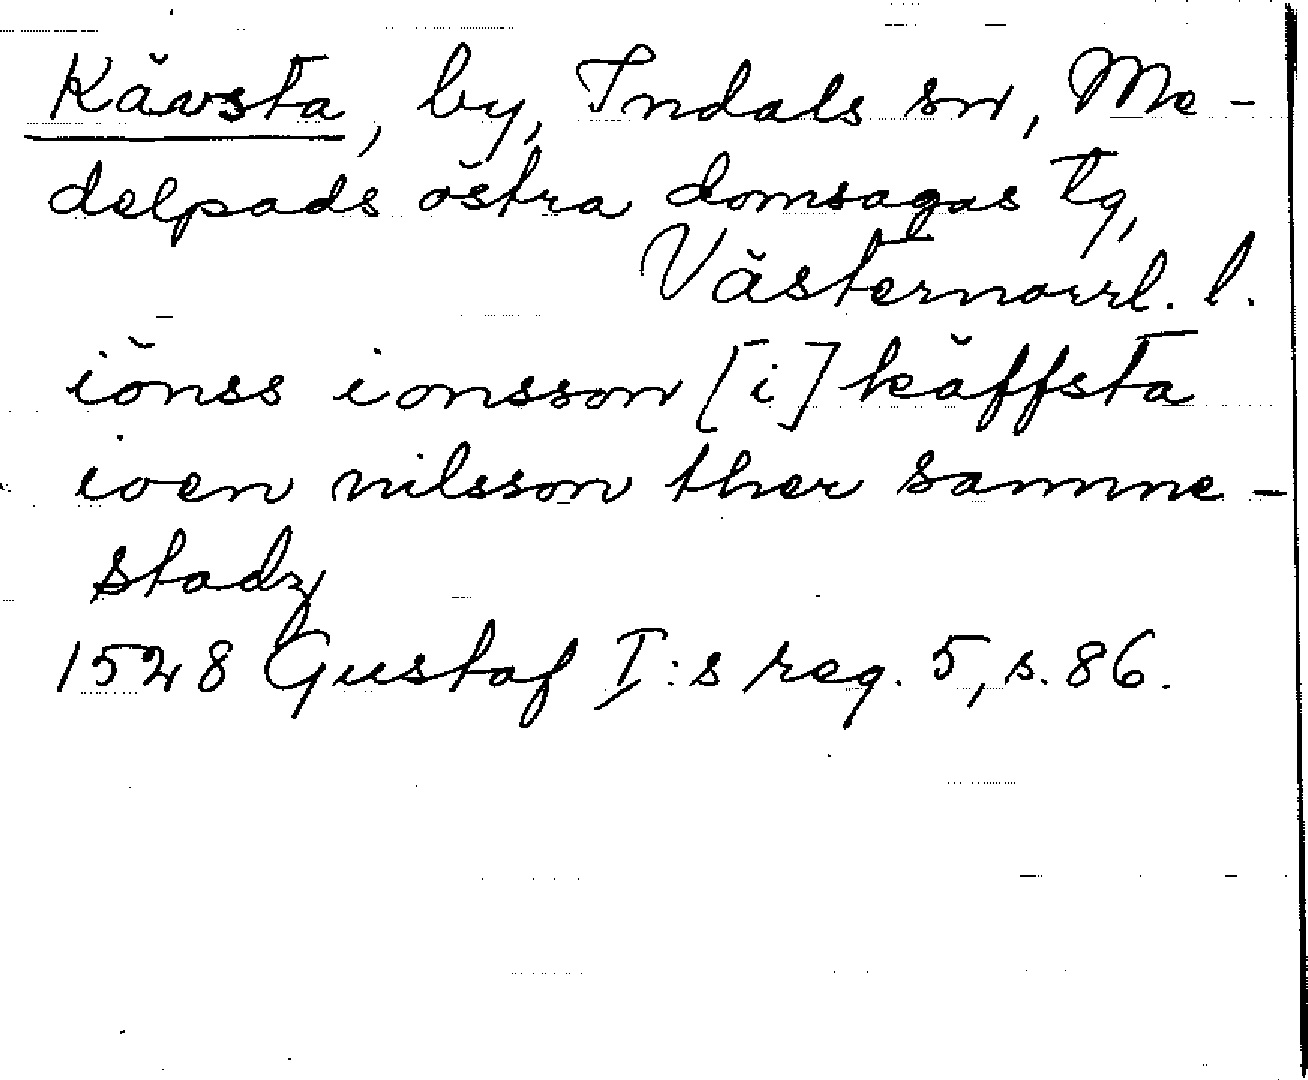 Kävsta, by, Indals sn, Me-
delpads östra domsagas tg,
Västernorrl. l.
iönss ionsson [i] käffsta
ioen nilsson ther samme-
stadz
1528 Gustaf I:s reg. 5, s. 86.